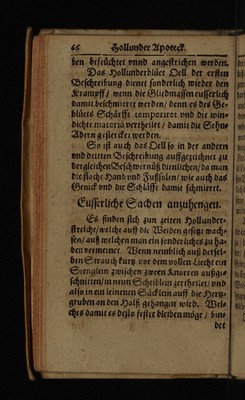 66 Hollunder Apoteck.
ben befeuchtet vnnd angestrichen werden.
Das Hollunderblüet Oell der ersten
Beschreibung dienet sonderlich wieder den
Krampff / wenn die Gliedmassen eusserlich
damit beschmieret werden / denn es des Ge-
blüets Schärffe temporirot vnd die win-
dichte materiā vertheilet / damit die Sehn-
Adern gestercket werden.
So ist auch das Oell so in der andern
vnd dritten Beschreibung auffgezeichnet zu
dergleichen Beschwernüß dienlichen / da man
die flache Hand vnd Fußsolen / wie auch das
Genick vnd die Schläffe damit schmieret.
Eusserliche Sachen anzuhengen.
Es finden sich zun zeiten Hollunder-
streiche / welche auff die Weiden gesetzt wach-
sen / auß welchen man ein sonderliches zu ha-
ben vermeinet. Wenn nemblich auß dersel-
ben Strauch kurtz vor dem vollen Liecht ein
Stenglein zwischen zween Knorren außge-
schnitten / in neun Scheiblein zertheilet / vnd
also in ein leinenen Säcklein auff die Hertz-
gruben an den Halß gehangen wird. Wel-
ches damit es desto fester bleiben möge / bin-
det